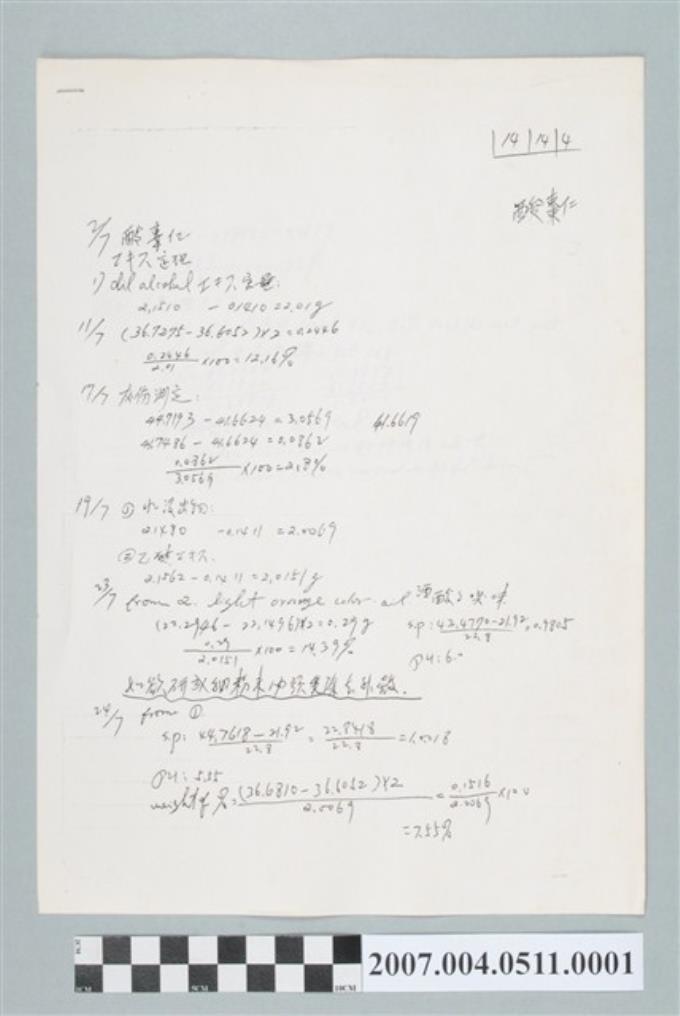 14 | 14 | 4
酸棗仁
2/7 酸棗仁
エキス定理
1) dil alcohol エキス定量:
2.1510 - 0.1410 = 2.01g
11/7 (36.7275 - 36.6052) × 2 = 0.2446
0.2446/2.01 × 100 = 12.16%
7/7 灰份測定:
44.7193 - 41.6624 = 3.0569 41.6619
41.7486 - 41.6624 = 0.0862
0.0862/3.0569 × 100 = 2.8%
19/7 ① 水浸出物:
2.1480 - 0.1411 = 2.0069
② 乙醇エキス.
2.1562 - 0.1411 = 2.0151g
23/7 from 2. light orange color. 
(22.2946 - 22.1496) × 2 = 0.29g s.p: 42.4770 - 21.92/22.8 = 0.9805
0.29/2.0151 × 100 = 14.39% PH: 6.
如欲研成細粉末必須
24/7 from ①
s.p: 44.7618 - 21.92/22.8 = 22.8418/22.8 = 1.0018
PH: 5.35
weight of %: (36.6810 - 36.6052) × 2/2.0069 = 0.1516/2.0069 × 100
= 7.55%
2007.004.0511.0001